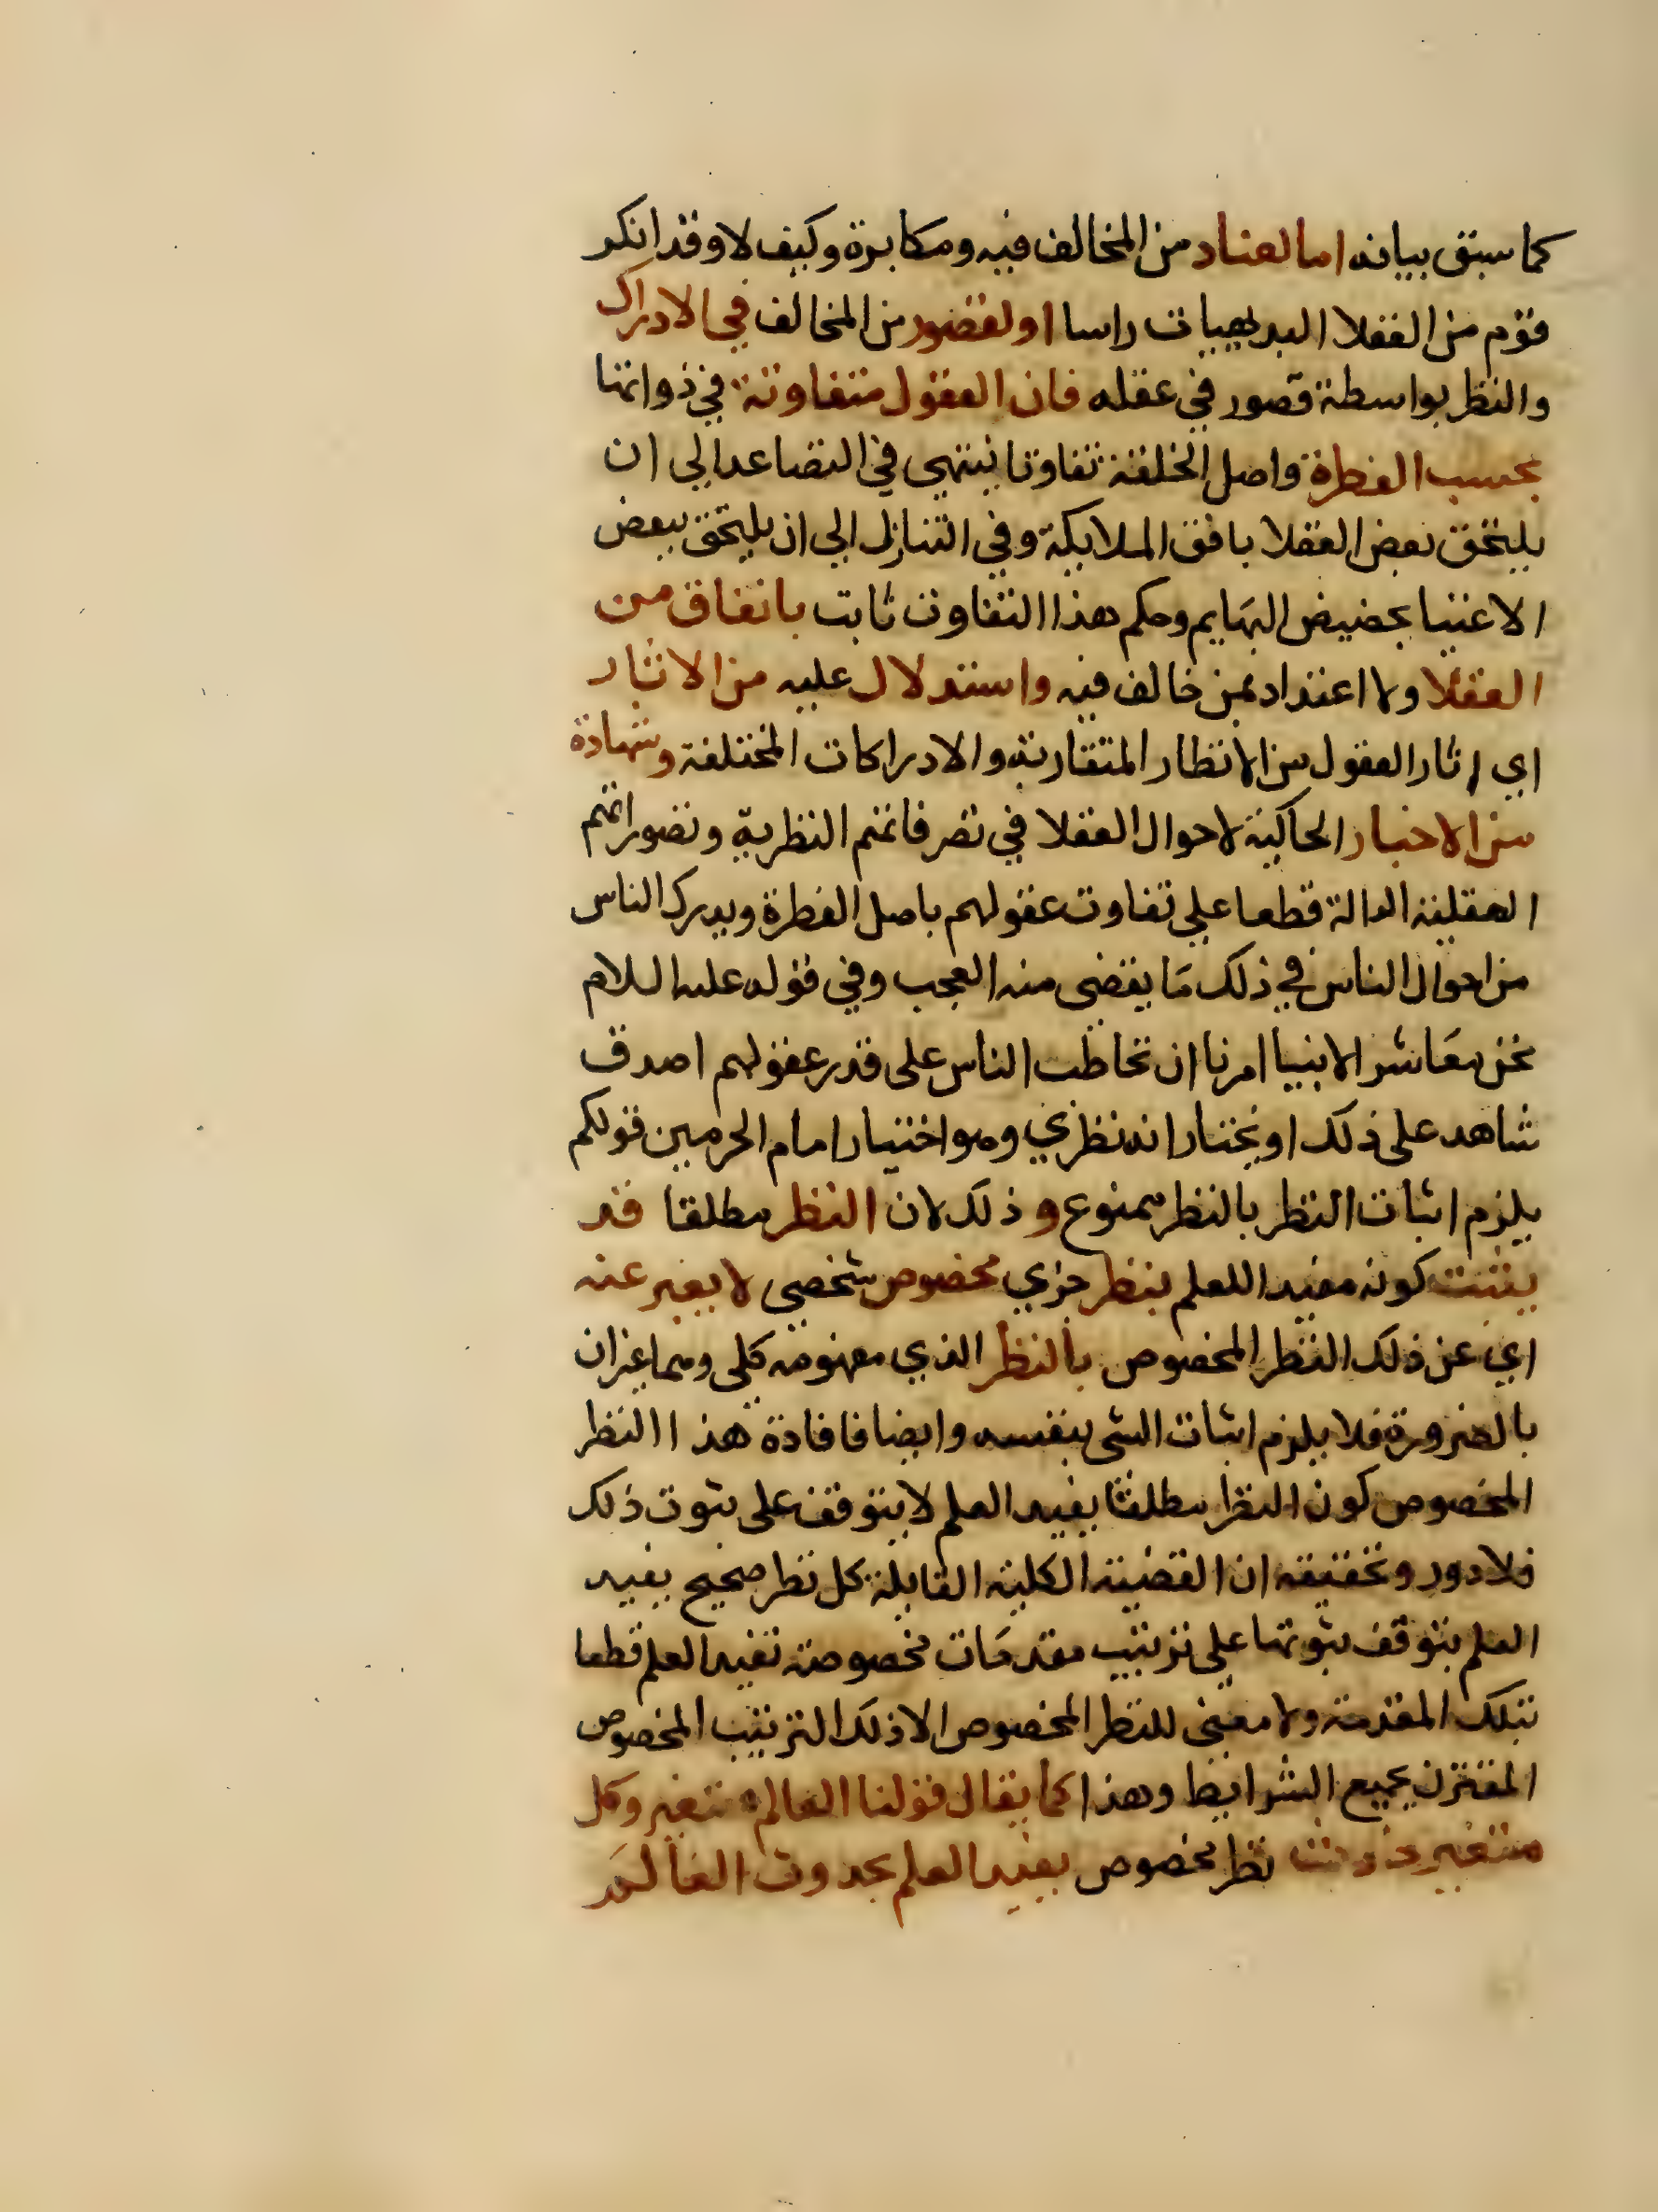 كما سبق بيانه اما لعناد من المخالف فيه ومكابرة وكيف لا وقد انكر
قوم من العقلا البديهيات راسا او لقصور من المخالف في الادراك
والنظر بواسطة قصور في عقله فان العقول متفاوتة في ذواتها
بحسب الفطرة واصل الخلقة تفاوتا ينتهي في التصاعد الي ان
يلتحق بعض العقلا بافق الملايكة وفي التنازل الي ان يلتحق ببعض
الاغبيا بحضيض البهايم وحكم هذا التفاوت ثابت باتفاق من
العقلا ولا اعتداد بمن خالف فيه واستدلال عليه من الاثار
اي اثار العقول من الانظار المتقاربة والادراكات المختلفة وشهادة
من الاخبار الحاكية لاحوال العقلا في تصرفاتهم النظرية وتصوراتهم
العقلية الدالة قطعا علي تفاوت عقولهم باصل الفطرة ويدرك الناس
من احوال الناس في ذلك ما يقضى منه العجب وفي قوله عليه السلام
نحن معاشر الانبيا امرنا ان نخاطب الناس على قدر عقولهم اصدق
شاهد على ذلك او نختار انه نظري وهو اختيار امام الحرمين قولكم
يلزم اثبات النظر بالنظر ممنوع و ذلك لان النظر مطلقا قد
يثبت كونه مفيدا للعلم بنظر جزي مخصوص شخصي لا يعبر عنه
اي عن ذلك النظر المخصوص بالنظر الذي مفهومه كلى وهما غيران
بالضرورة فلا يلزم اثبات الشى بنفسه وايضا فافادة هذا النظر
المخصوص كون النظر مطلقا يفيد العلم لا يتوقف على ثبوت ذلك
فلا دور وتحقيقه ان القضية الكلية القايلة كل نظر صحيح يفيد
العلم يتوقف ثبوتها علي ترتيب مقدمات مخصوصة تفيد العلم قطعا
بتلك المقدمة ولا معنى للنظر المخصوص الا ذلك الترتيب المخصوص
المقترن بجميع الشرايط وهذا كما يقال قولنا العالم متغير وكل
متغير حادث نظر مخصوص يفيد العلم بحدوث العالم